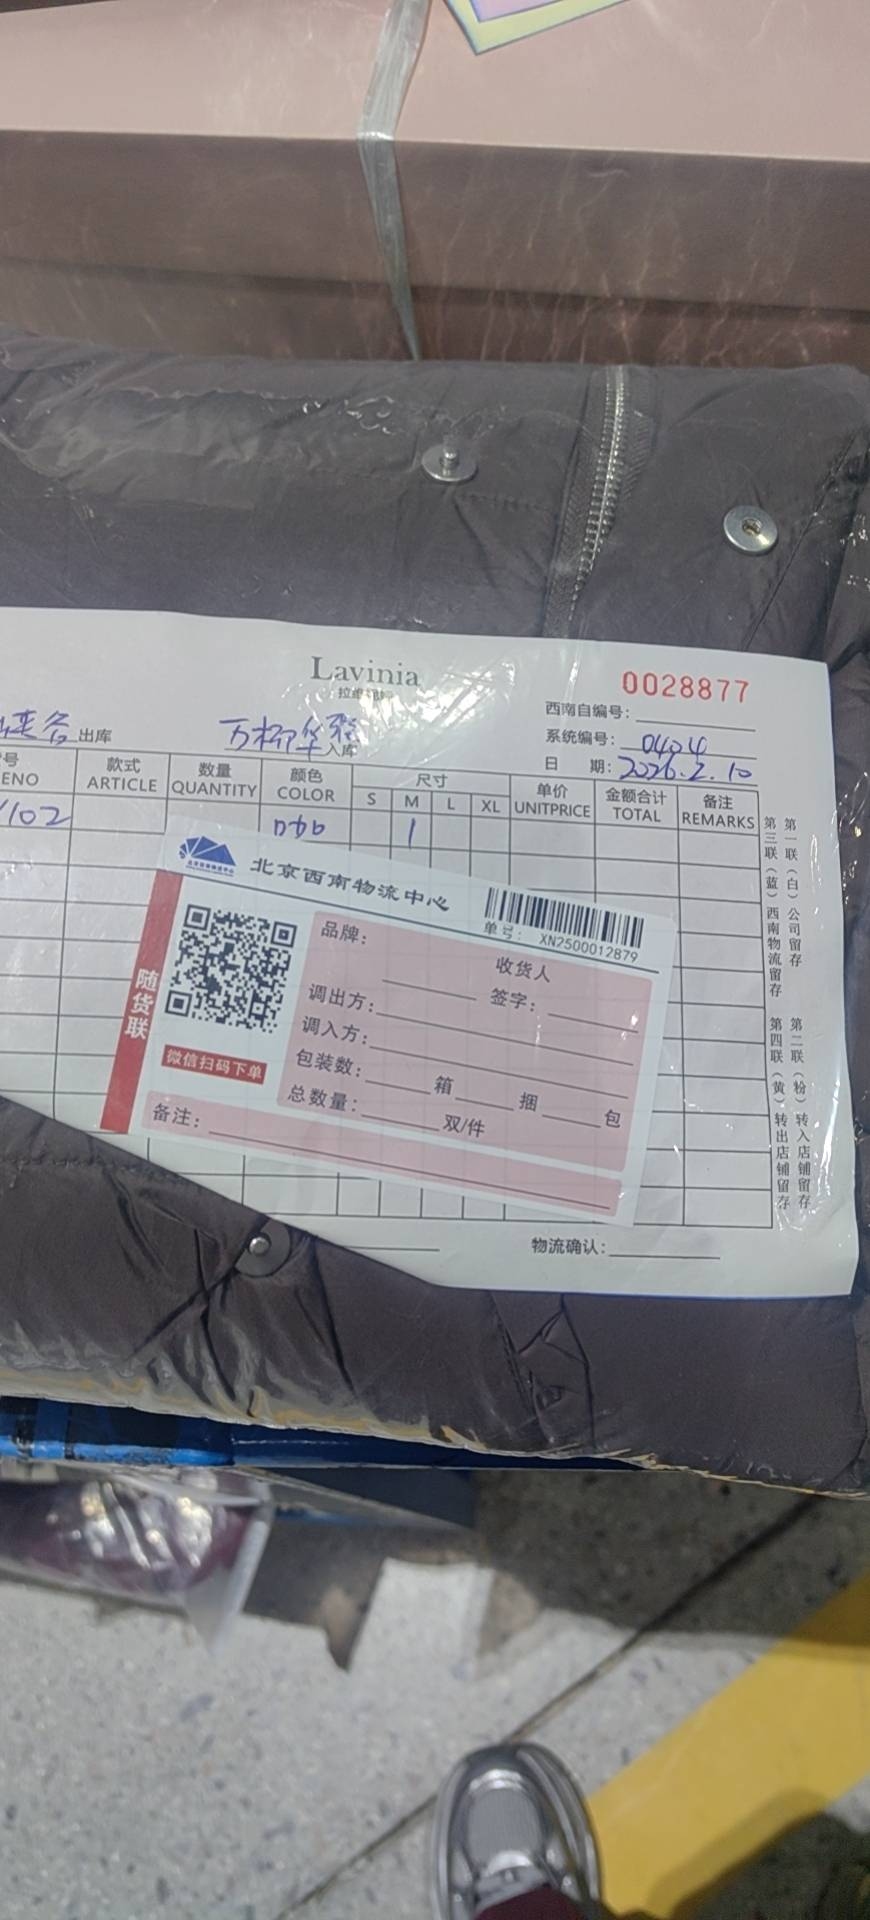 Lavinia
0028877
西南自编号：
系统编号：0404
出库
万柳华联入库
日 期：2026.2.10
号 款式 数量 颜色 尺寸 单价 金额合计 备注
ENO ARTICLE QUANTITY COLOR S M L XL UNITPRICE TOTAL REMARKS
102 咖 1
第一联（白）公司留存 第二联（粉）转入店铺留存
第三联（蓝）西南物流留存 第四联（黄）转出店铺留存
北京西南物流中心
单号： XN2500012879
随货联
微信扫码下单
品牌：
收货人
签字：
调出方：
调入方：
包装数： 箱 捆 包
总数量： 双/件
备注：
物流确认：